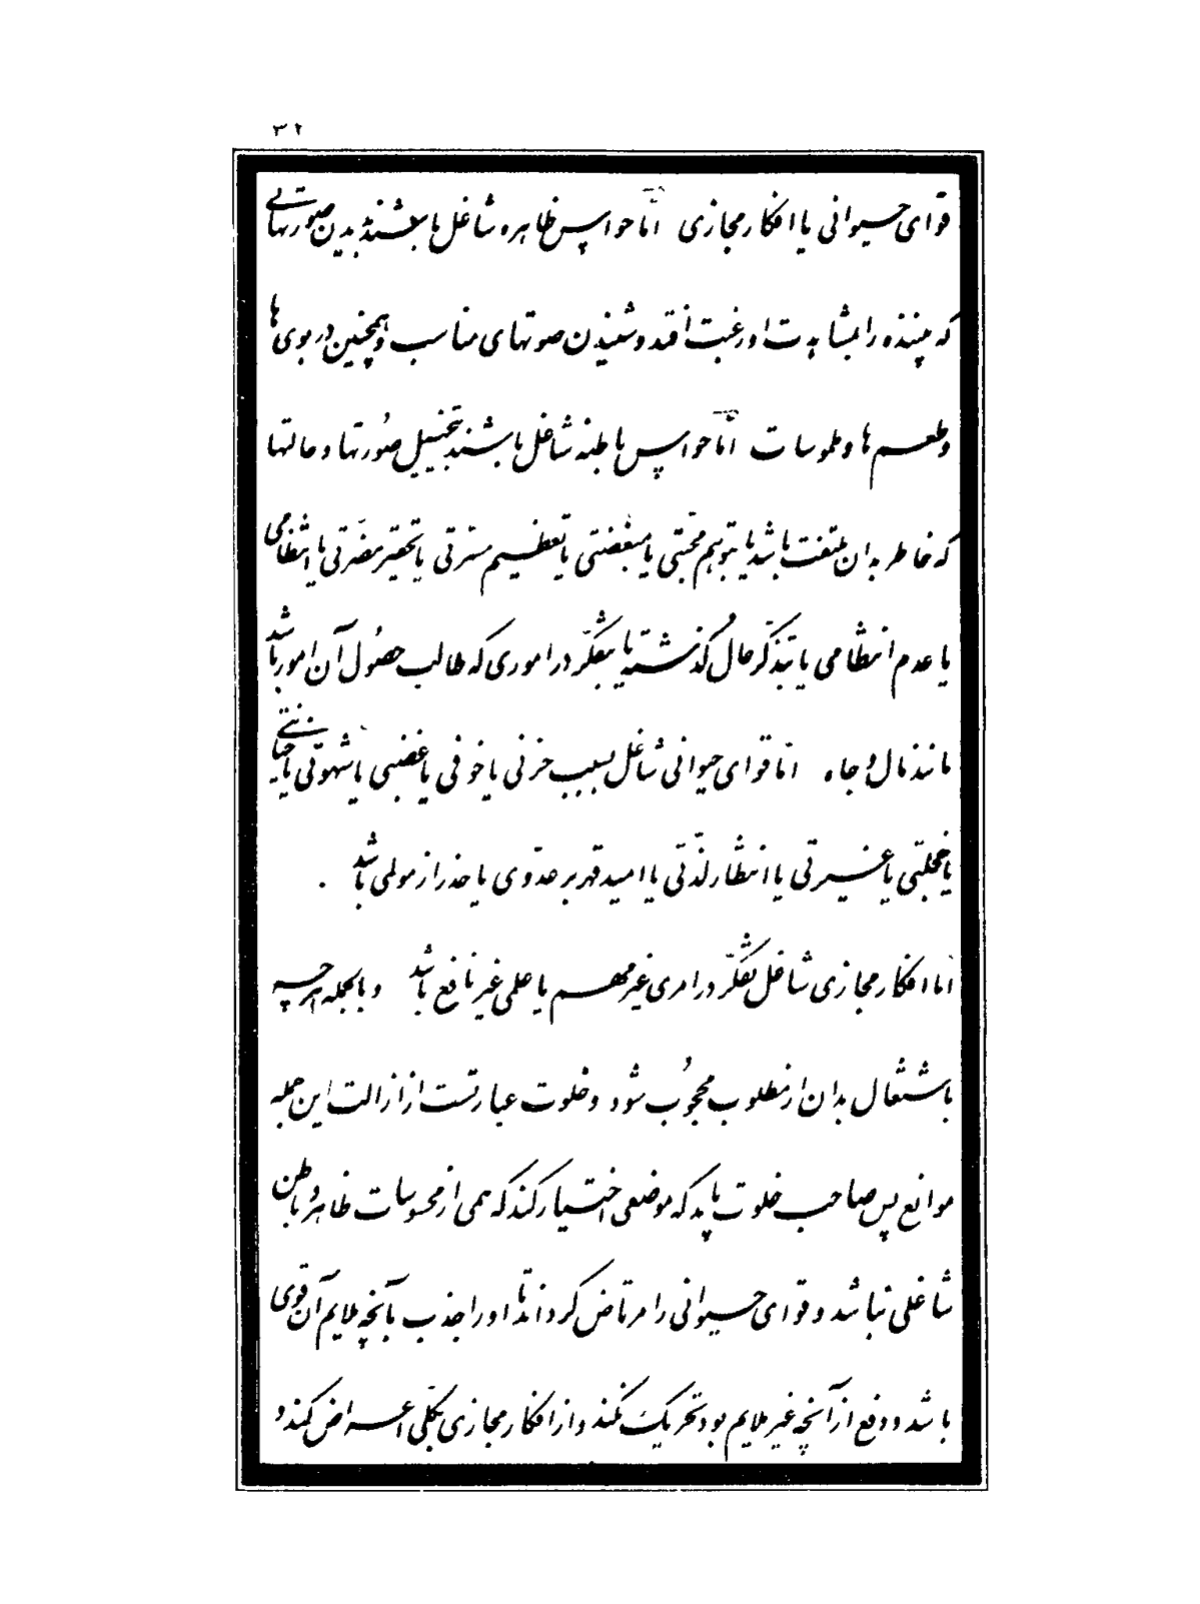 ۳۲
قوای حیوانی یا افکار مجازی امّا حواس ظاهره شاغل باشند بدین صورتهایی
که بیننده را بمشاهدت او رغبت افتد و شنیدن صوتهای مناسب و همچنین در بوی ها
و طعم ها و ملموسات امّا حواس باطنه شاغل باشند بتخییل صُورتها و حالتها
که خاطر بدان ملتفت باشد یا بتوهم محبّتی یا مبغضتی یا تعظیم مسرتی یا تحقیر مضرّتی یا انتظامی
یا عدم انتظامی یا بتذکّر حال گذشته یا بتفکّر در اموری که طالب حصُول آن امور باشد
مانند مال و جاه امّا قوای حیوانی شاغل بسبب حزنی یا خوفی یا غضبی یا شهوتی یا خیانتی
یا خجلتی یا غیرتی یا انتظار لذّتی یا امید قهر بر عدوّی یا حذر از مولمی باشد .
امّا افکار مجازی شاغل تفکّر در امری غیر مهم یا علمی غیر نافع باشد و بالجمله هر چه
باشتغال بدان از مطلوب محجُوب شود و خلوت عبارتست از ازالت این جمله
موانع پس صاحب خلوت باید که موضعی اختیار کند که همی از محسوسات ظاهر و باطن
شاغلی نباشد و قوای حیوانی را مرتاض گرداند تا او را جذب بآنچه ملایم آن قوی
باشد و دفع از آنچه غیر ملایم بود تحریک نکند و از افکار مجازی بکلّی اعراض کند و